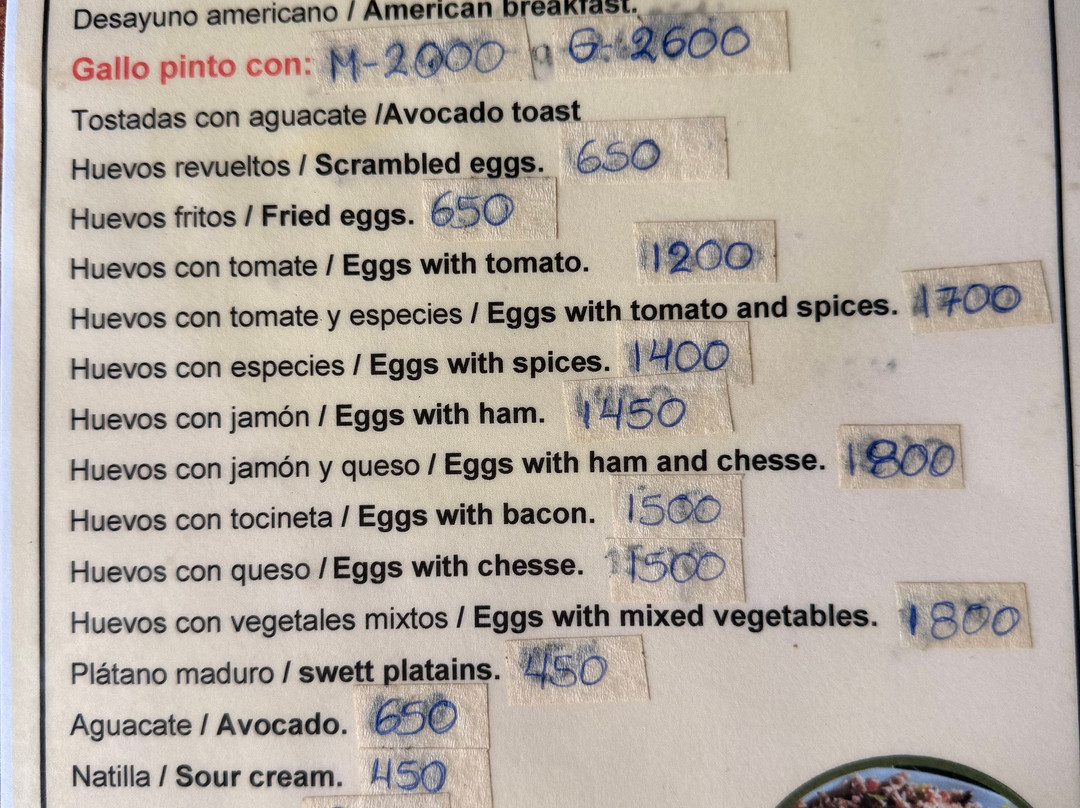 Desayuno americano / American breakfast.
Gallo pinto con: M-2000 G-2600
Tostadas con aguacate /Avocado toast
Huevos revueltos / Scrambled eggs. 650
Huevos fritos / Fried eggs. 650
Huevos con tomate / Eggs with tomato. 1200
Huevos con tomate y especies / Eggs with tomato and spices. 1700
Huevos con especies / Eggs with spices. 1400
Huevos con jamón / Eggs with ham. 1450
Huevos con jamón y queso / Eggs with ham and chesse. 1800
Huevos con tocineta / Eggs with bacon. 1500
Huevos con queso / Eggs with chesse. 1500
Huevos con vegetales mixtos / Eggs with mixed vegetables. 1800
Plátano maduro / swett platains. 450
Aguacate / Avocado. 650
Natilla / Sour cream. 450